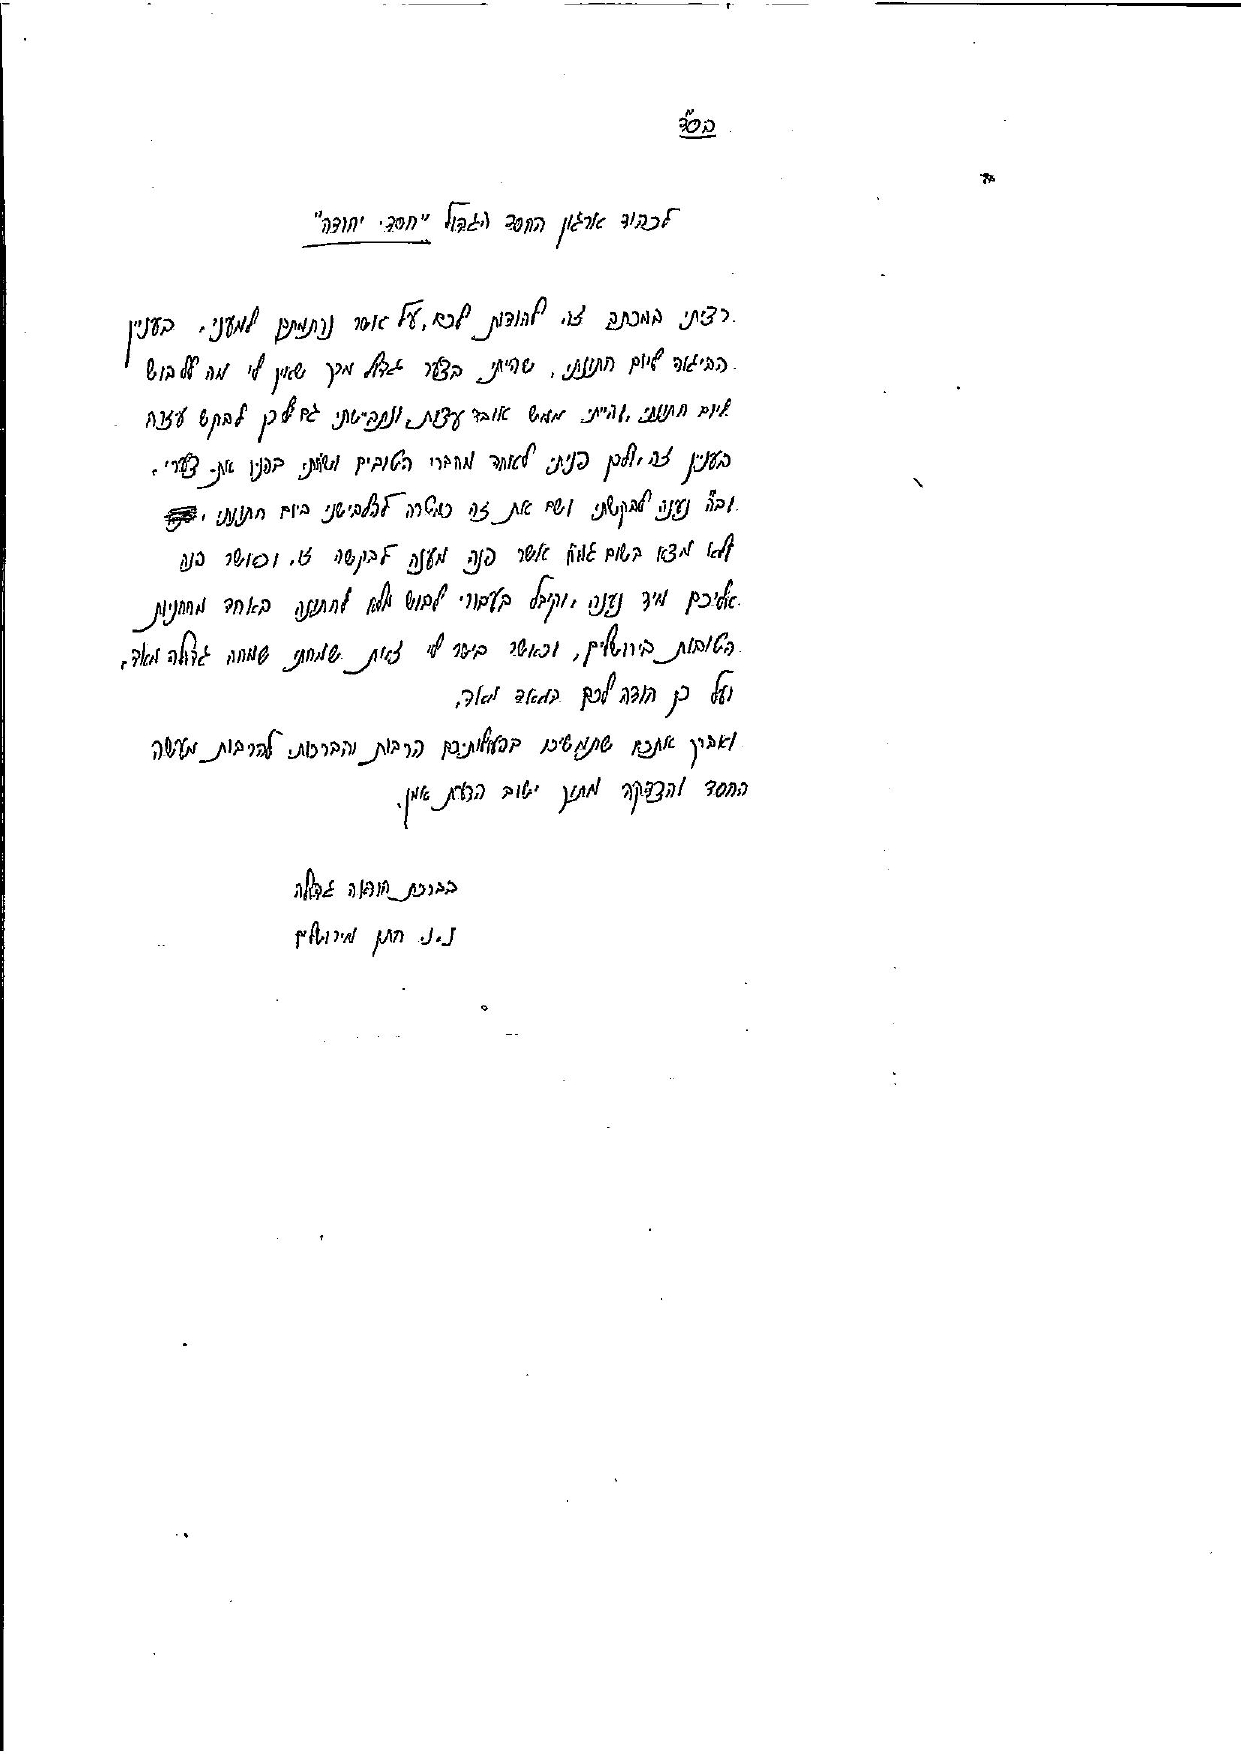 בס"ד
לכבוד ארגון החסד הגדול "חסדי יהודה"
רציתי במכתב זה להודות לכם, על אשר נרתמתם למעני, בענין
הביגוד ליום חתונתי, שהייתי בצער גדול מכך שאין לי מה ללבוש
ליום חתונתי, והייתי ממש אובד עצות, ונתביישתי גם לכן לבקש עזרה
בענין זה, ולכן פניתי לאחד מחברי הטובים ושטחתי בפניו את צערי,
וב"ה נענה לבקשתי ושם את זה כמטרה להלבישני ביום חתונתי,
ולא מצא בשום גמ"ח אשר פנה מענה לבקשה זו, וכאשר פנה
אליכם מיד נענה, וקיבל בעבורי לבוש מלא לחתונה באחד מחנויות
הטובות בירושלים, וכאשר בישר לי זאת שמחתי שמחה גדולה מאד,
ועל כן תודה לכם במאד מאד,
ואברך אתכם שתמשיכו בפעילותיכם הרבות והברכות להרבות מעשה
החסד והצדקה מתוך ישוב הדעת אמן.
בברכת תודה גדולה
נ.נ. חתן מירושלים